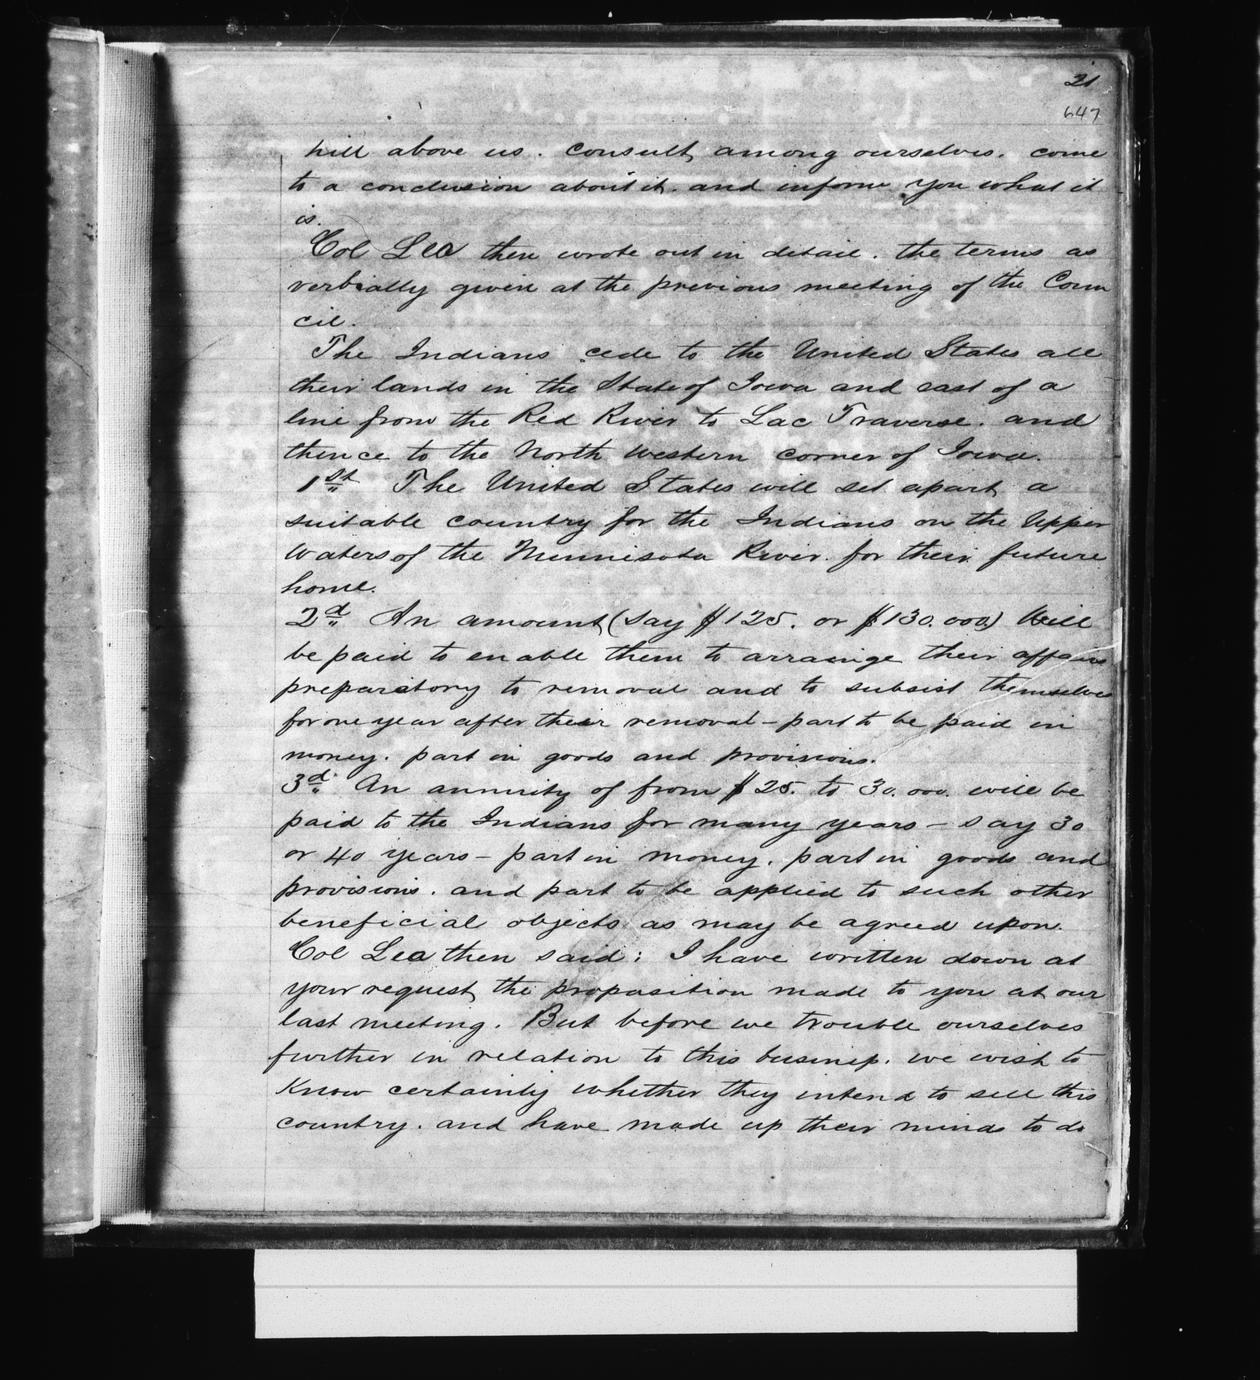 21
647
hill above us. consult among ourselves. come
to a conclusion about it. and inform you what it
is.
Col Lea then wrote out in detail. the terms as
verbially given at the previous meeting of the Coun
cil.
The Indians cede to the United States all
their lands in the State of Iowa and east of a
line from the Red River to Lac Traverse. and
thence to the North Western corner of Iowa.
1st The United States will set apart a
suitable country for the Indians on the Upper
Waters of the Minnesota River. for their future
home.
2d An amount (say $125. or $130.000) Will
be paid to enable them to arrainge their affairs
preparatory to removal and to subsist themselves
for one year after their removal - part to be paid in
money. part in goods and provisions.
3d An annuity of from $25. to 30.000. will be
paid to the Indians for many years - say 30
or 40 years - part in money. part in goods and
provisions. and part to be applied to such other
beneficial objects as may be agreed upon.
Col Lea then said: I have written down at
your request the proposition made to you at our
last meeting. But before we trouble ourselves
further in relation to this business. we wish to
Know certainly whether they intend to sell this
country. and have made up their minds to do